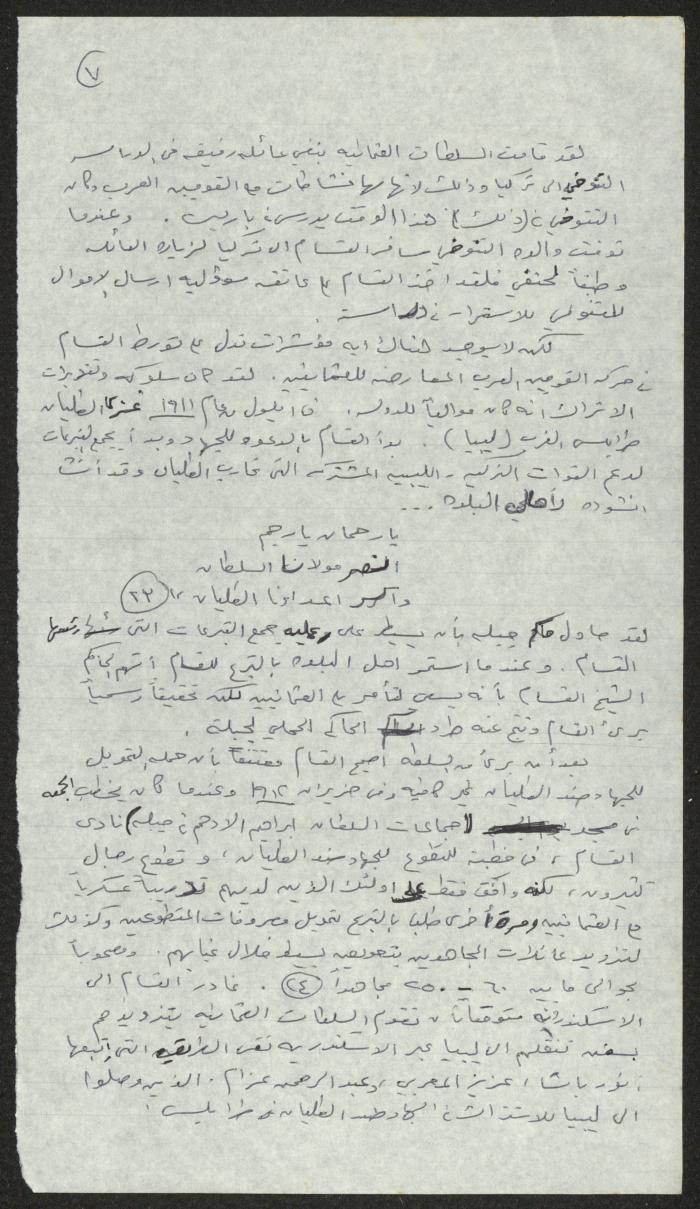 ٧
لقد قامت السلطات العثمانية بنفي عائلة رفيقه في الدراسة
التنوخي الى تركيا وذلك لانها لها نشاطات مع القوميين العرب وكان
التنوخي في (ذلك) هذا الوقت يدرس في باريس. وعندما
توفت والدة التنوخي سافر القسام الى تركيا لزيارة العائلة
وطبقاً لحنفي فلقد اخذ القسام على عاتقه مسؤولية ارسال الاموال
للتنوخي للاستمرار في دراسته.
لكن لا يوجد هناك اية مؤشرات تدل على تورط القسام
في حركة القوميين العرب المعارضة للعثمانيين. لقد كان سلوكه وتقديرات
الاتراك انه كان موالياً للدولة. في ايلول من عام ١٩١١ غزى الطليان
طرابلس الغرب (ليبيا). بدأ القسام بالدعوة للجهاد وبدأ يجمع التبرعات
لدعم القوات التركية - الليبية المشتركة التي تحارب الطليان وقد أنشأ
انشودة لأهالي البلدة ...
يا رحمان يا رحيم
النصر مولانا السلطان
واكسر اعداءنا الطليان " (٢٣)
لقد حاول حاكم جبلة بأن يسيطر على عملية جمع التبرعات التي
القسام. وعندما استمر اهل البلدة بالتبرع للقسام أتهم الحاكم
الشيخ القسام بأنه يسعى للتآمر على العثمانيين لكن تحقيقاً رسمياً
برئ القسام ونتج عنه طرد الحاكم المحلي لجبلة.
بعد أن برئ من السلطة اصبح القسام مقتنعاً بأن حملة التمويل
للجهاد ضد الطليان غير كافية وفي حزيران ١٩١٢ وعندما كان يخطب الجمعة
في مسجد (جماعات السلطان ابراهيم الادهم في جبلة) نادى
القسام، في خطبته للتطوع للجهاد ضد الطليان، وتطوع رجال
كثيرون، لكنه وافق فقط على اولئك الذين لديهم تدريباً عسكرياً
مع العثمانيين ومرة أخرى طلبا بالتبرع لتمويل مصروفات المتطوعين وكذلك
لتزويد عائلات المجاهدين بتعويض بسيط خلال غيابهم. ومصحوباً
بحوالي ما بين ٦٠ - ٢٥٠ مجاهداً (٢٤). غادر القسام الى
الاسكندرانه متوقعاً ان تقوم السلطات العثمانية بتزويدهم
بسفن تنقلهم الى ليبيا عبر الاسكندرية نفس الطريق التي إتبعها
انور باشا، عزيز المصري، وعبد الرحمن عزام. الذين وصلوا
الى ليبيا للاشتراك في الجهاد ضد الطليان في طرابلس.